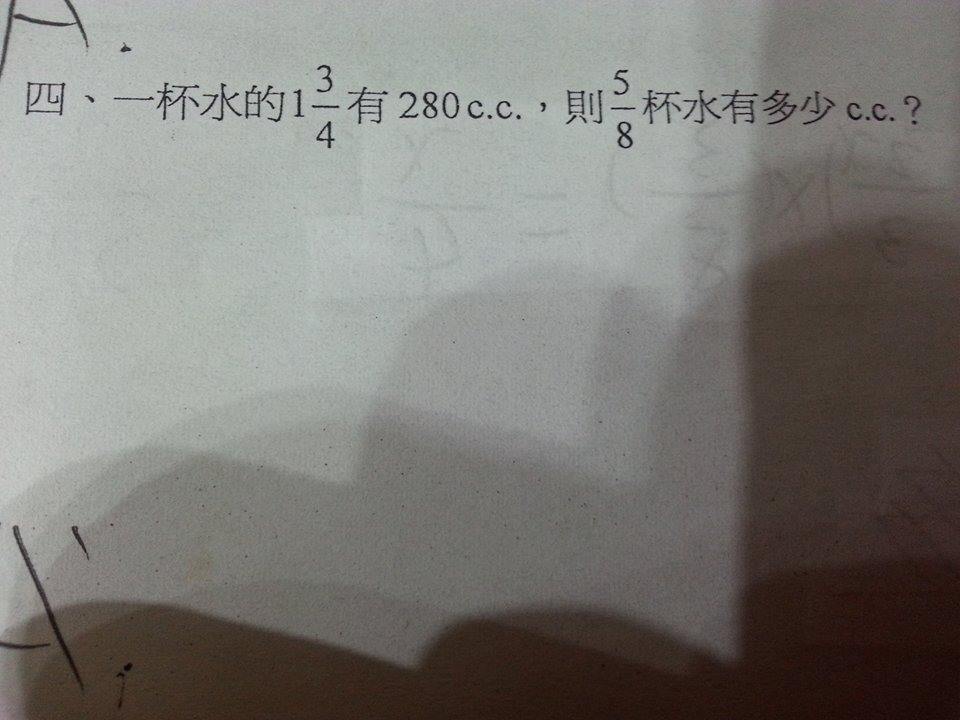 四、一杯水的1 3/4 有 280c.c.，則 5/8 杯水有多少 c.c.？